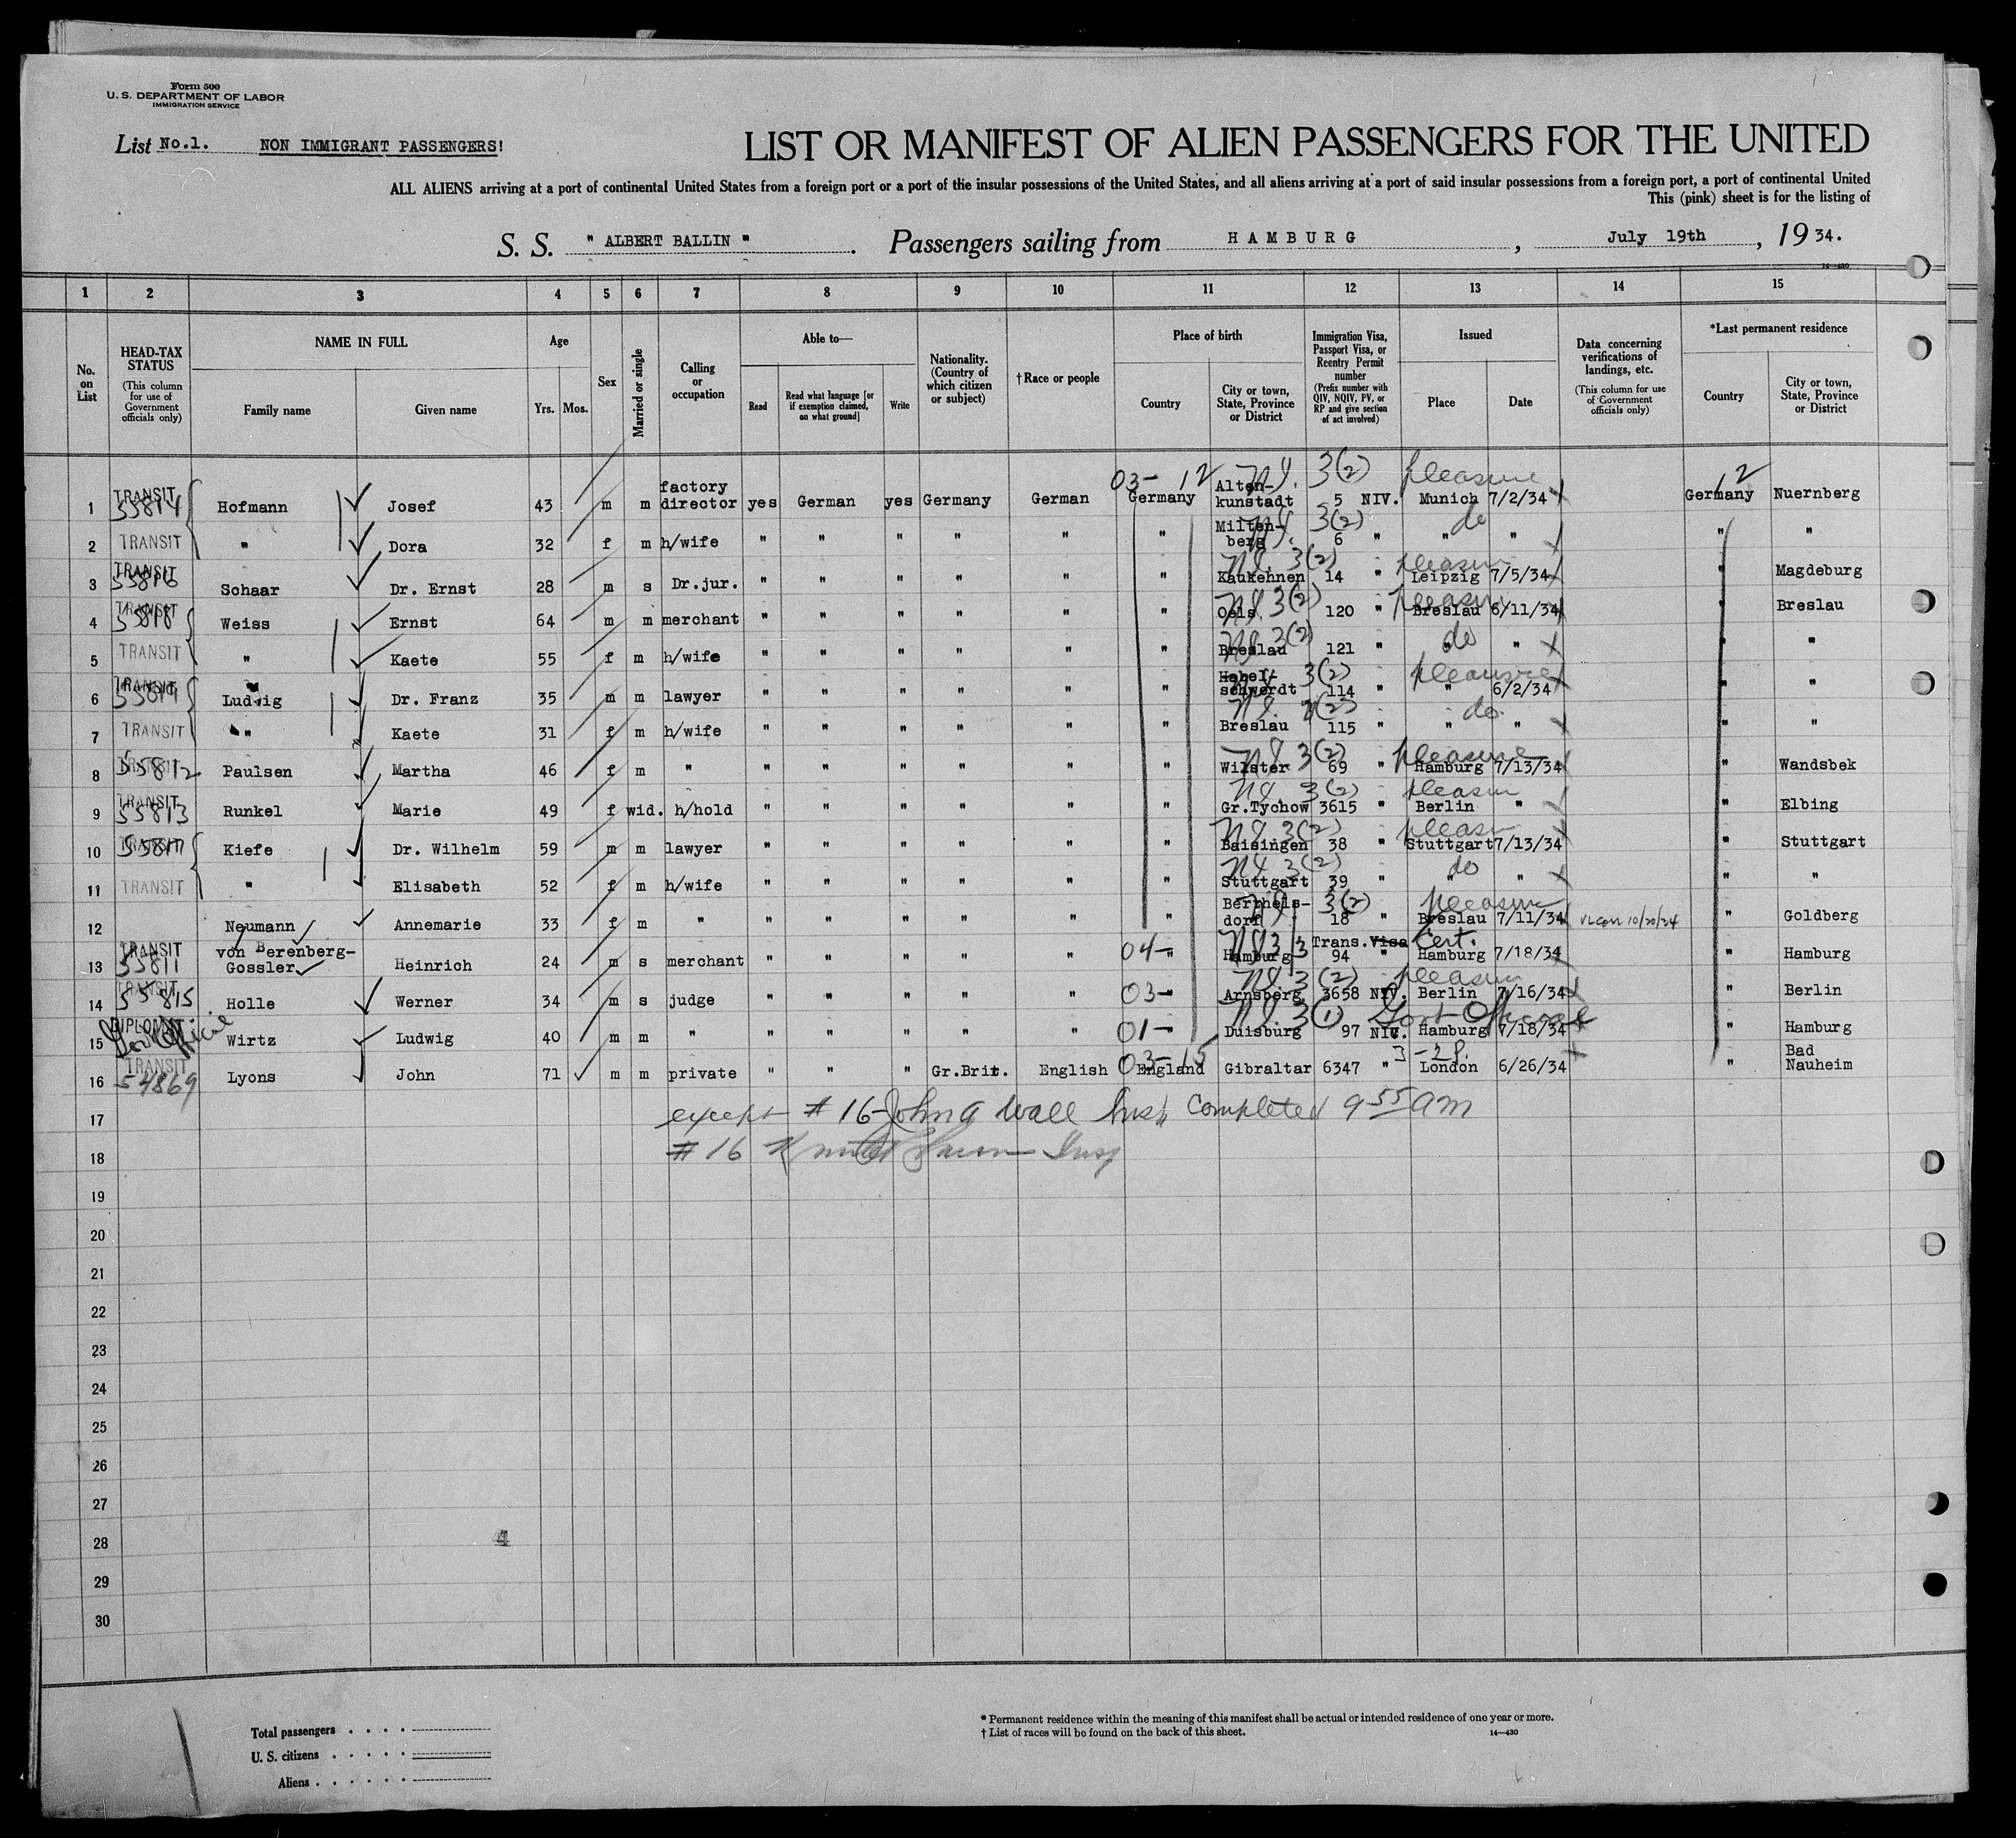 Form 500
U. S. DEPARTMENT OF LABOR
IMMIGRATION SERVICE
List No.1. NON IMMIGRANT PASSENGERS!
LIST OR MANIFEST OF ALIEN PASSENGERS FOR THE UNITED
ALL ALIENS arriving at a port of continental United States from a foreign port or a port of the insular possessions of the United States, and all aliens arriving at a port of said insular possessions from a foreign port, a port of continental United
This (pink) sheet is for the listing of
S. S. " ALBERT BALLIN " . Passengers sailing from HAMBURG , July 19th , 19 34.
14—430
1 2 3 4 5 6 7 8 9 10 11 12 13 14 15
No. on List
HEAD-TAX STATUS (This column for use of Government officials only)
NAME IN FULL
Family name Given name
Age
Yrs. Mos.
Sex
Married or single
Calling or occupation
Able to—
Read Read what language [or if exemption claimed, on what ground] Write
Nationality. (Country of which citizen or subject)
† Race or people
Place of birth
Country City or town, State, Province or District
Immigration Visa, Passport Visa, or Reentry Permit number (Prefix number with QIV, NQIV, PV, or RP and give section of act involved)
Issued
Place Date
Data concerning verifications of landings, etc. (This column for use of Government officials only)
*Last permanent residence
Country City or town, State, Province or District
03- 12 3(2) pleasure 12
1 TRANSIT 55814 Hofmann Josef 43 m m factory director yes German yes Germany German Germany Alten-kunstadt 5 NIV. Munich 7/2/34 Germany Nuernberg
3(2) do
2 TRANSIT " Dora 32 f m h/wife " " " " " " Milten-berg 6 " " " " "
3(2) pleasure
3 TRANSIT 55816 Schaar Dr. Ernst 28 m s Dr.jur. " " " " " " Kaukehnen 14 " Leipzig 7/5/34 " Magdeburg
3(2) pleasure
4 TRANSIT 55818 Weiss Ernst 64 m m merchant " " " " " " Oels 120 " Breslau 6/11/34 " Breslau
3(2) do
5 TRANSIT " Kaete 55 f m h/wife " " " " " " Breslau 121 " " " " "
3(2) pleasure
6 TRANSIT 55819 Ludwig Dr. Franz 35 m m lawyer " " " " " " Habel-schwerdt 114 " " 6/2/34 " "
do
7 TRANSIT " Kaete 31 f m h/wife " " " " " " Breslau 115 " " " " "
3(2) pleasure
8 TRANSIT 55812 Paulsen Martha 46 f m " " " " " " " Wilster 69 " Hamburg 7/13/34 " Wandsbek
3(2) pleasure
9 TRANSIT 55813 Runkel Marie 49 f wid. h/hold " " " " " " Gr.Tychow 3615 " Berlin " " Elbing
3(2) pleasure
10 TRANSIT 55817 Kiefe Dr. Wilhelm 59 m m lawyer " " " " " " Baisingen 38 " Stuttgart 7/13/34 " Stuttgart
3(2) do
11 TRANSIT " Elisabeth 52 f m h/wife " " " " " " Stuttgart 39 " " " " "
3(2) pleasure
12 Neumann Annemarie 33 f m " " " " " " " 18 " Breslau 7/11/34 10/20/34 " Goldberg
04- Trans. Visa Cert.
13 TRANSIT 55811 von Berenberg-Gossler Heinrich 24 m s merchant " " " " " " Hamburg 94 " Hamburg 7/18/34 " Hamburg
03- 3(2) pleasure
14 55815 Holle Werner 34 m s judge " " " " " " Arnsberg 3658 NIV. Berlin 7/16/34 " Berlin
01- 3(1) Govt Official
15 DIPLOMAT Wirtz Ludwig 40 m m " " " " " " " Duisburg 97 NIV. Hamburg 7/18/34 " Hamburg
03-15
16 TRANSIT 54869 Lyons John 71 m m private " " " Gr.Brit. English England Gibraltar 6347 " London 6/26/34 " Bad Nauheim
17 except #16 John A Wall Insp completed 9 55 am
18 #16 Insp
19
20
21
22
23
24
25
26
27
28 4
29
30
Total passengers
U. S. citizens
Aliens
* Permanent residence within the meaning of this manifest shall be actual or intended residence of one year or more.
† List of races will be found on the back of this sheet. 14—430